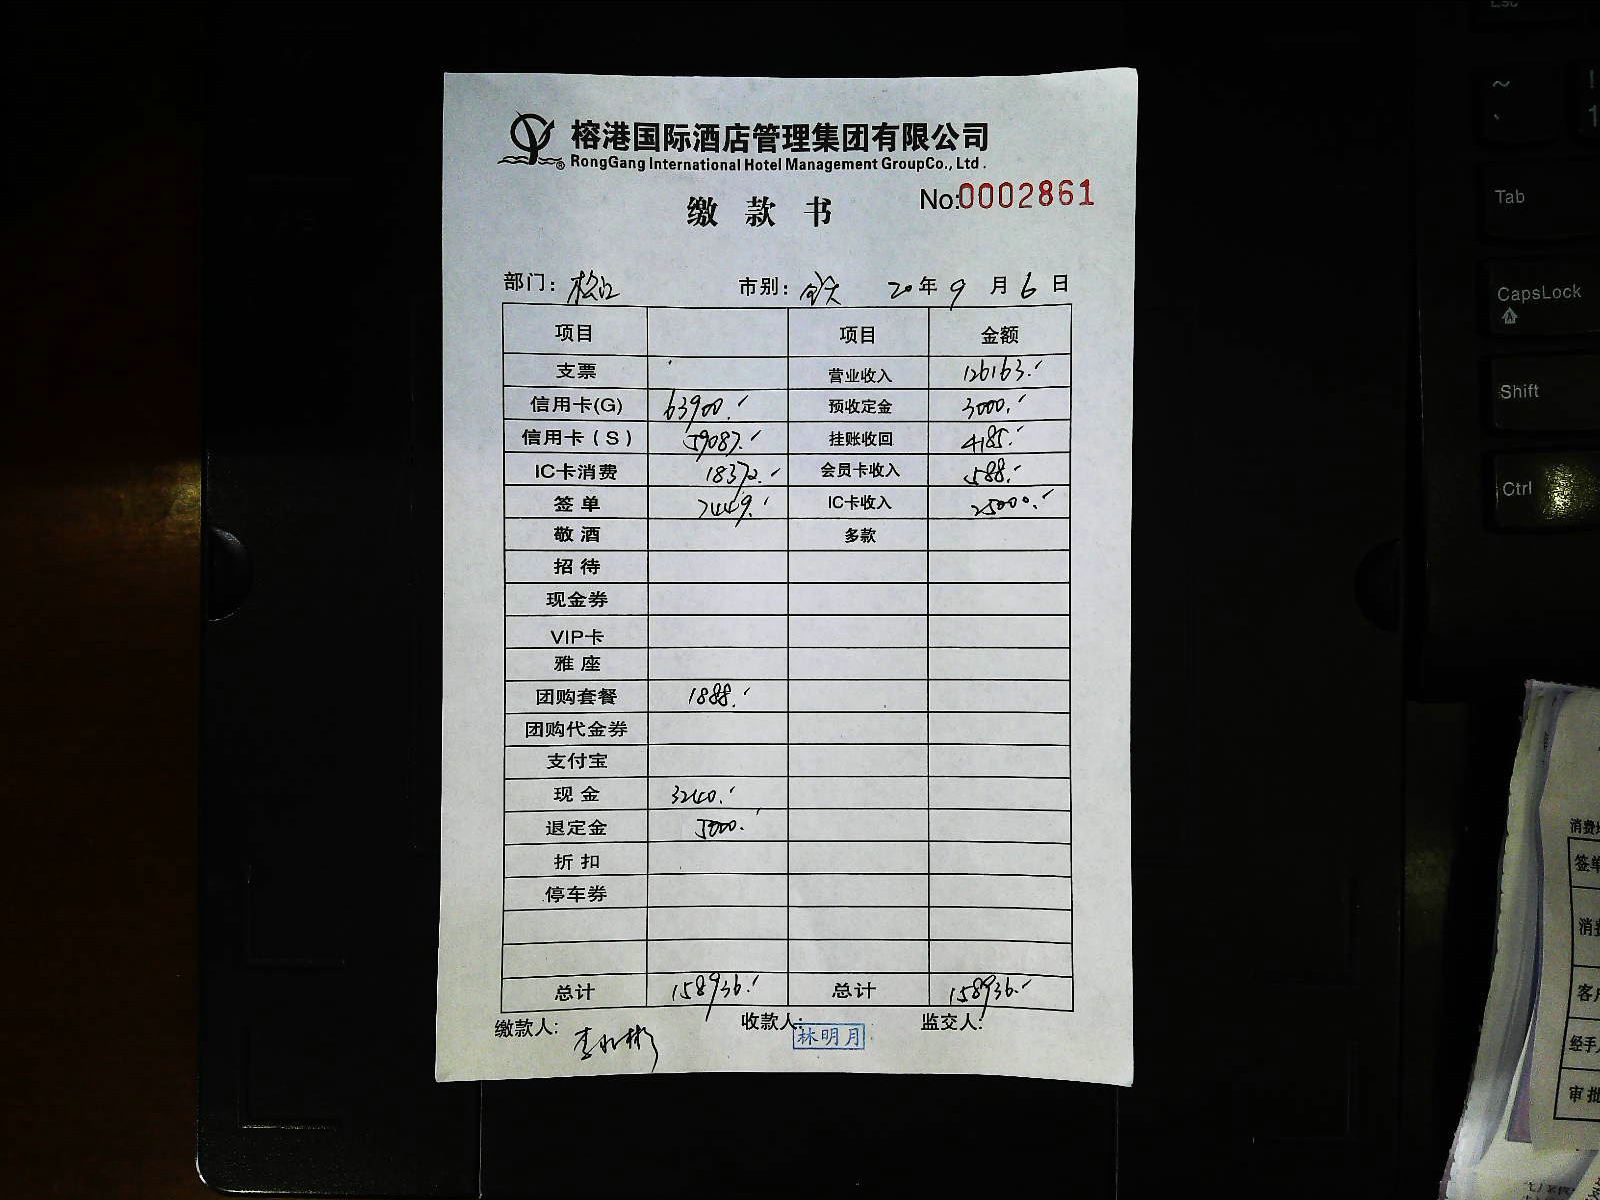 榕港国际酒店管理集团有限公司
RongGang International Hotel Management GroupCo., Ltd.
缴款书 No:0002861
部门: 松江 市别: 全天 20年9月6日
项目 项目 金额
支票 营业收入 126163.
信用卡(G) 63900. 预收定金 3000.
信用卡(S) 59087. 挂账收回 4185.
IC卡消费 18372. 会员卡收入 588.
签单 7449. IC卡收入 25000.
敬酒 多款
招待
现金券
VIP卡
雅座
团购套餐 1888.
团购代金券
支付宝
现金 3240.
退定金 5000.
折扣
停车券
总计 158936. 总计 158936.
缴款人: 收款人: 林明月 监交人:
Tab
CapsLock
Shift
Ctrl
消费
签单
消费
客户
经手人
审批